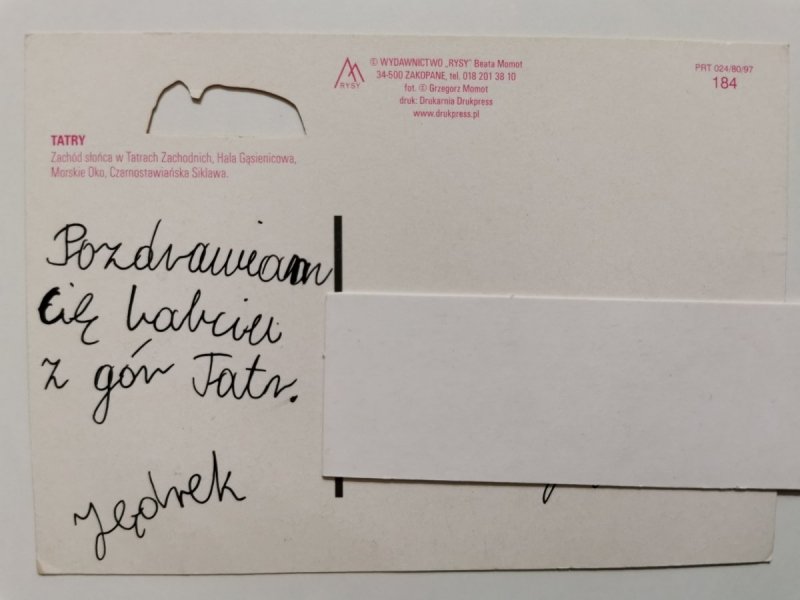 © WYDAWNICTWO „RYSY" Beata Momot
34-500 ZAKOPANE, tel. 018 201 38 10
fot. © Grzegorz Momot
druk: Drukarnia Drukpress
www.drukpress.pl
RYSY
PRT 024/80/97
184
TATRY
Zachód słońca w Tatrach Zachodnich, Hala Gąsienicowa,
Morskie Oko, Czarnostawiańska Siklawa.
Pozdrawiam
Cię babciu
z gór Tatr.
Jędrek